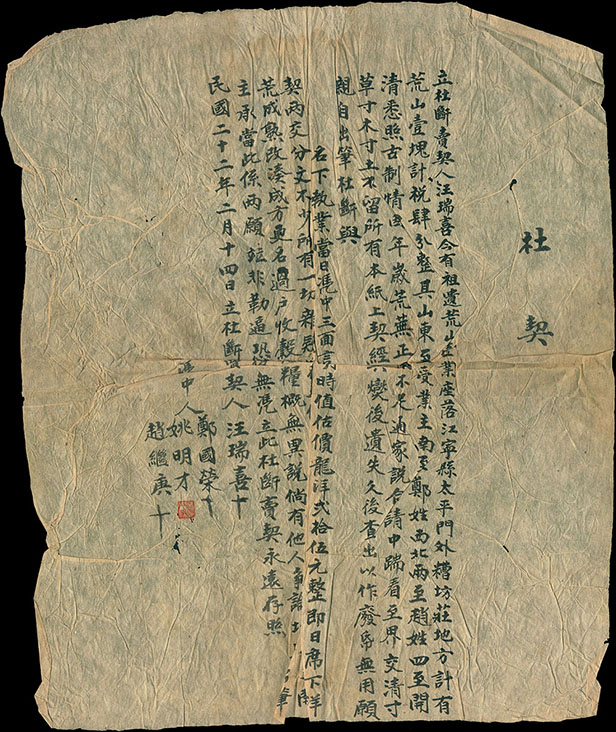 杜契
立杜斷賣契人汪瑞喜今有祖遺荒山壹業座落江寧縣太平門外糟坊莊地方計有
荒山壹塊計稅肆分整具山東至受業主南至鄭姓西北兩至趙姓四至開
清悉照古制情因年歲荒蕪正不足通家說合請中踹看至界交清寸
草寸木寸土不留所有本紙上契經變後遺失久後查出以作廢帋無用願
親自出筆杜斷與
名下執業當日憑中三面言時值估價龍洋弍拾伍元整即日席下洋
契兩交分文不少所有一切
荒成熟改湊成方更名過户收穀糧概無異說倘有他人爭論
主承當此係兩願並非勒逼恐無憑立此杜斷賣契永遠存照
民國二十二年二月十四日立杜斷賣契人汪瑞喜十
憑中人鄭國榮十
姚明才
趙繼庚十